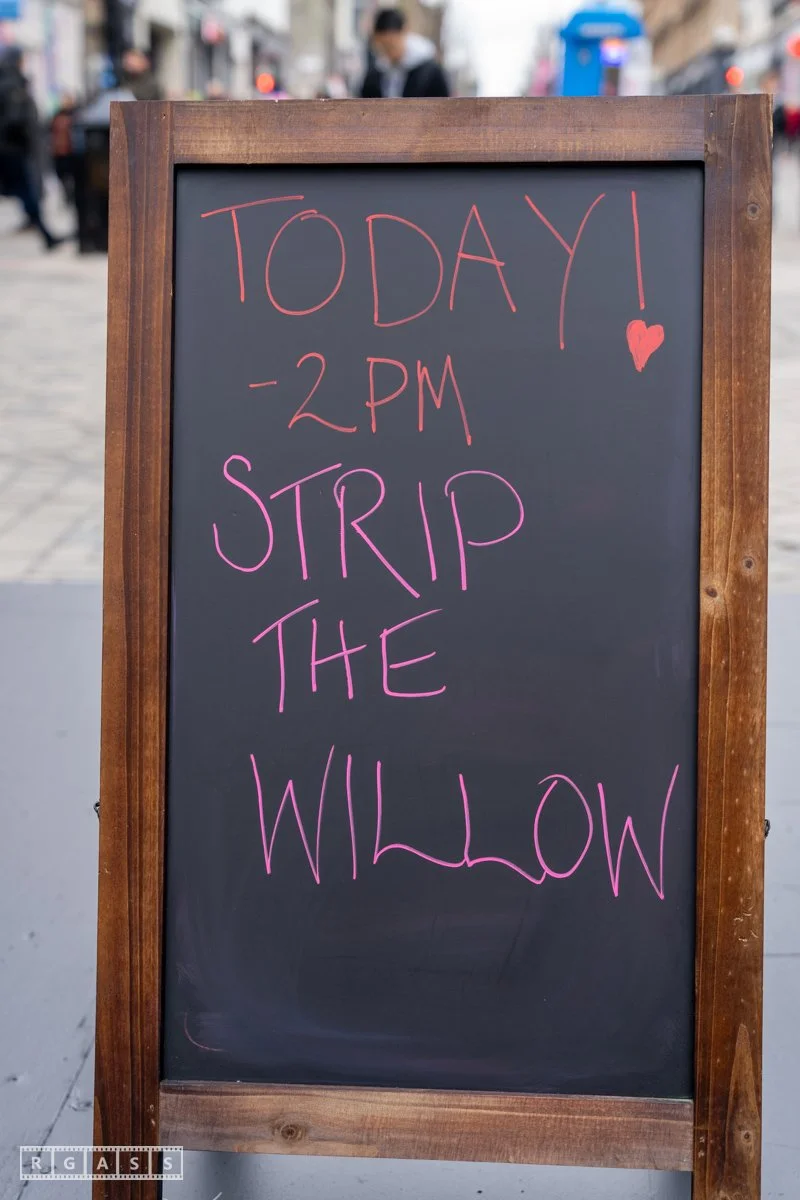 TODAY!
-2PM
STRIP
THE
WILLOW
RGASS